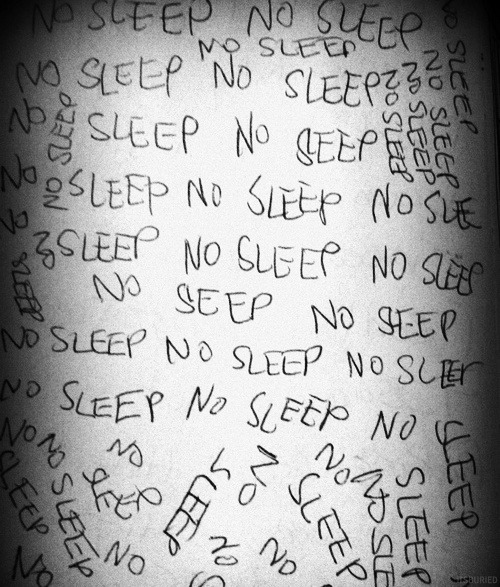 NO SLEEP NO SLEEP NO
NO SLEEP
NO SLEEP NO SLEEP
NO SLEEP
NO SLEEP
NO SLEEP
NO SLEEP
NO SLEEP NO SEEP
NO SLEEP
NO SLEEP NO SLEEP NO SLE
NO SLEEP NO SLEEP NO SLEEP
SLEEP
NO SEEP NO SEEP
NO SLEEP NO SLEEP NO SLEEP
NO SLEEP NO SLEEP NO SLEEP
NO SLEEP
NO SLEEP
NO SLEEP
SLEEP
NO
NO SLEEP
NO SLEEP
NO NO NO NO